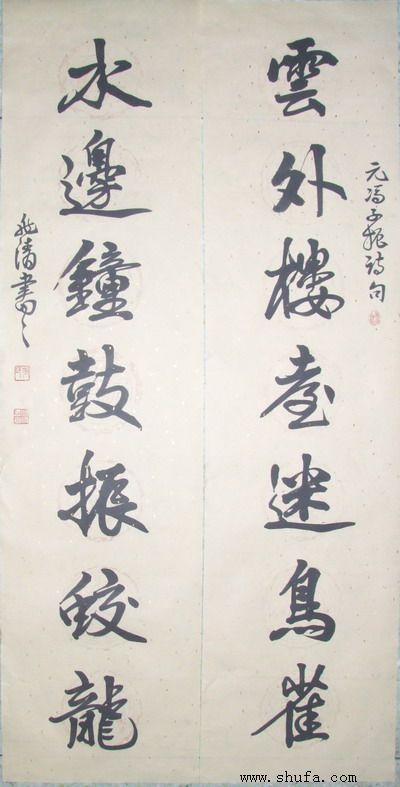 元馮子振詩句
雲外樓臺迷鳥雀
水邊鐘鼓振蛟龍
清書
www.shufa.com